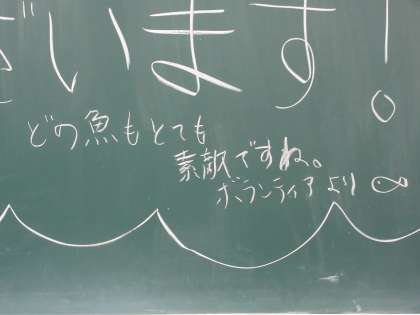 ざいます!
どの魚もとても
素敵ですね。
ボランティアより